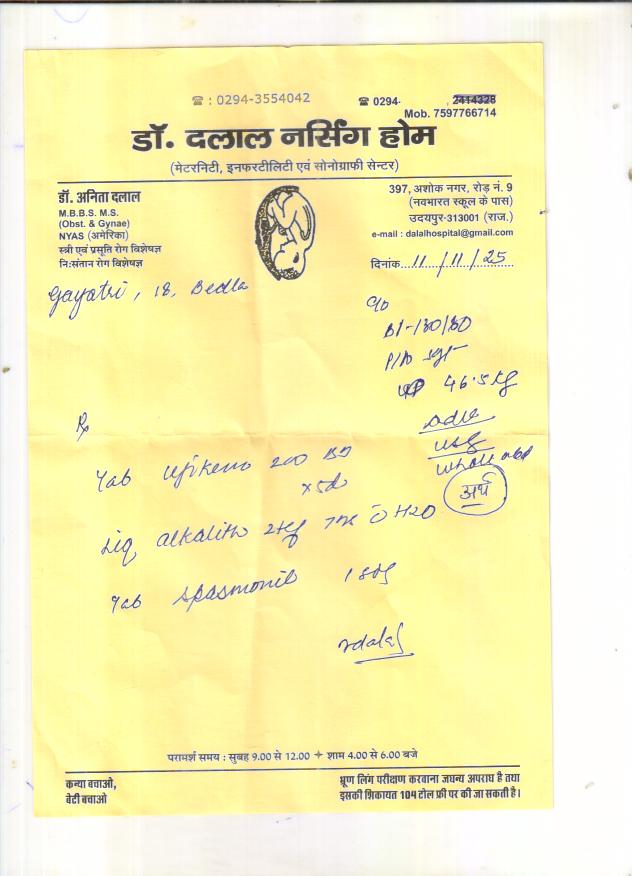 ☎ : 0294-3554042 ☎ 0294- , 2414328
Mob. 7597766714
डॉ. दलाल नर्सिंग होम
(मेटरनिटी, इनफरटीलिटी एवं सोनोग्राफी सेन्टर)
डॉ. अनिता दलाल
M.B.B.S. M.S.
(Obst. & Gynae)
NYAS (अमेरिका)
स्त्री एवं प्रसूति रोग विशेषज्ञ
नि:संतान रोग विशेषज्ञ
397, अशोक नगर, रोड़ नं. 9
(नवभारत स्कूल के पास)
उदयपुर-313001 (राज.)
e-mail : dalalhospital@gmail.com
दिनांक 11/11/25
Gayatri, 18, Bedla
c/o
P/A
46.5 kg
Adv
USG
Whole abd
अर्थ
Rx
Tab 200 BD
x5d
Liq 2tsf c H2O
Tab spasmonil 1 SOS
परामर्श समय : सुबह 9.00 से 12.00 ✦ शाम 4.00 से 6.00 बजे
कन्या बचाओ,
बेटी बचाओ
भ्रूण लिंग परीक्षण करवाना जघन्य अपराध है तथा
इसकी शिकायत 104 टोल फ्री पर की जा सकती है।